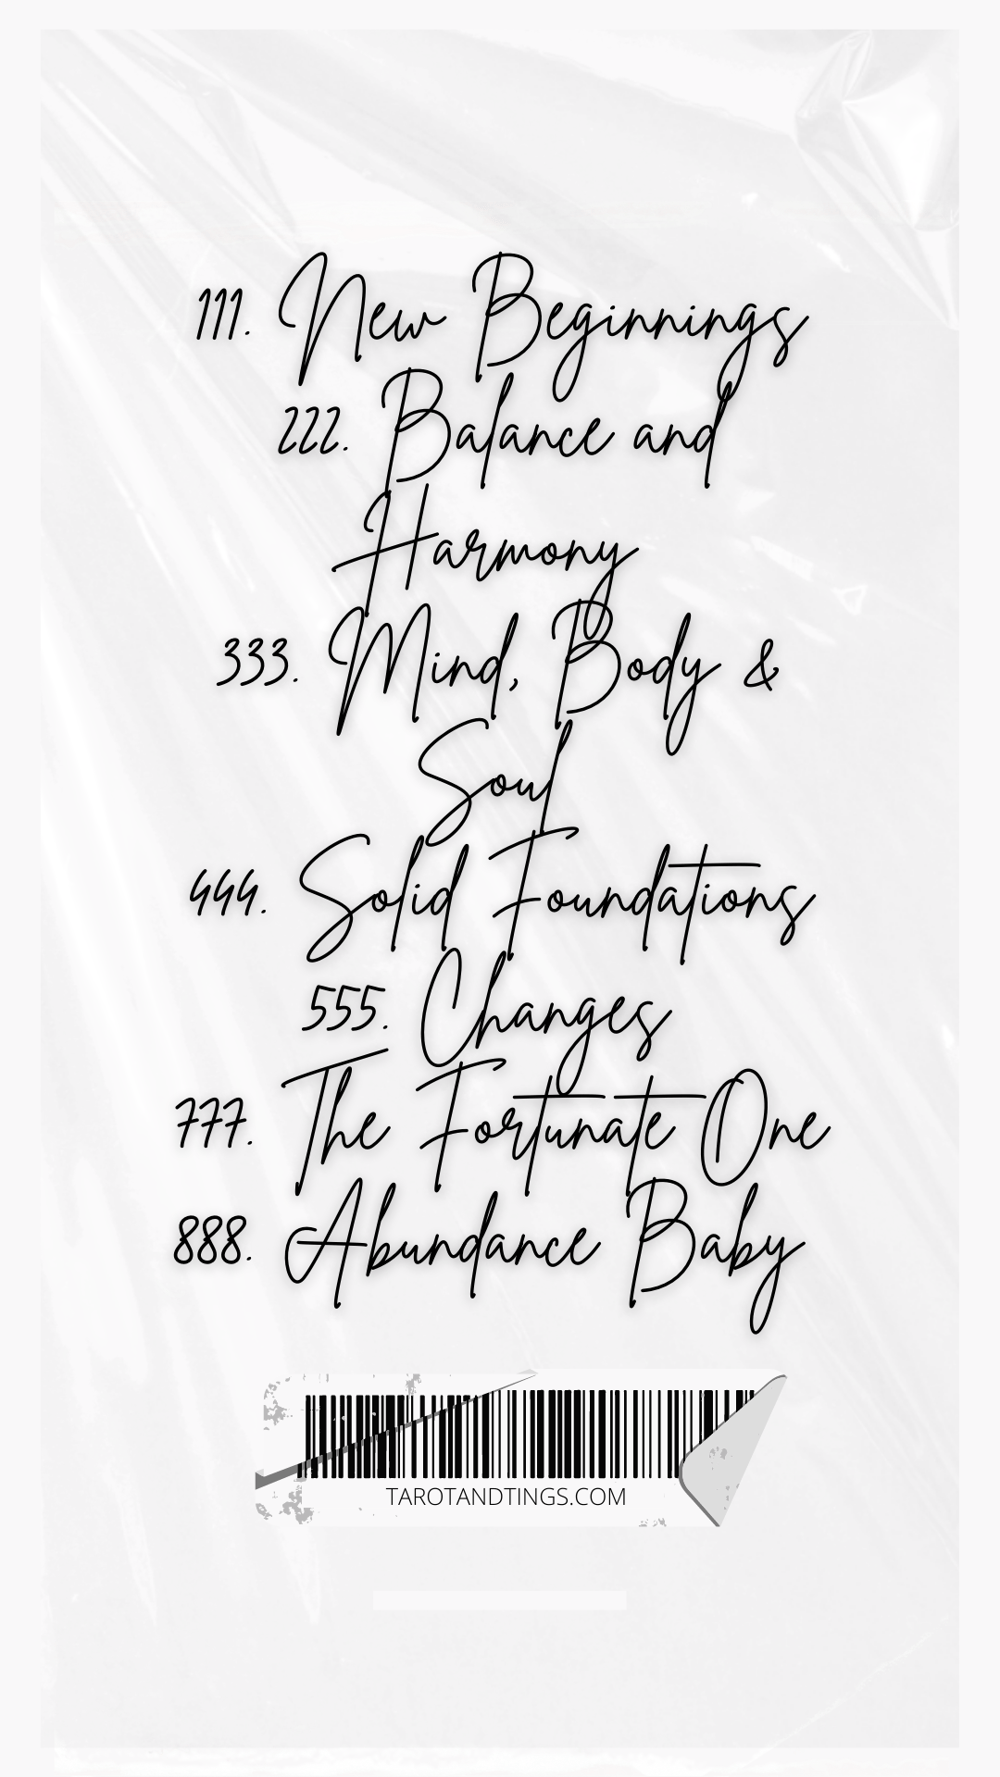 111. New Beginnings
222. Balance and
Harmony
333. Mind, Body &
Soul
444. Solid Foundations
555. Changes
777. The Fortunate One
888. Abundance Baby
TAROTANDTINGS.COM